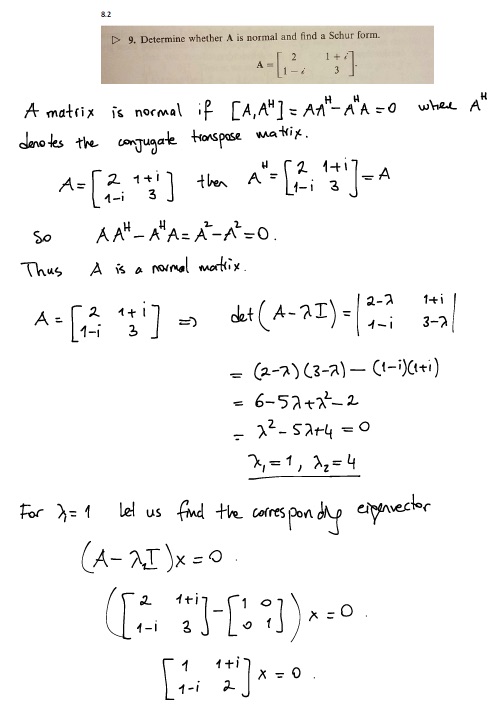 8.2
▷ 9. Determine whether A is normal and find a Schur form.
A = [ 2 1 + i ; 1 − i 3 ].
A matrix is normal if [A, A^H] = AA^H − A^H A = 0 where A^H
denotes the conjugate transpose matrix.
A = [ 2 1+i ; 1−i 3 ] then A^H = [ 2 1+i ; 1−i 3 ] = A
So AA^H − A^H A = A² − A² = 0.
Thus A is a normal matrix.
A = [ 2 1+i ; 1−i 3 ] ⇒ det(A − λI) = | 2−λ 1+i ; 1−i 3−λ |
= (2−λ)(3−λ) − (1−i)(1+i)
= 6−5λ+λ²−2
= λ²−5λ+4 = 0
λ₁ = 1, λ₂ = 4
For λ₁ = 1 let us find the corresponding eigenvector
(A − λ₁I)x = 0.
([ 2 1+i ; 1−i 3 ] − [ 1 0 ; 0 1 ]) x = 0.
[ 1 1+i ; 1−i 2 ] x = 0.